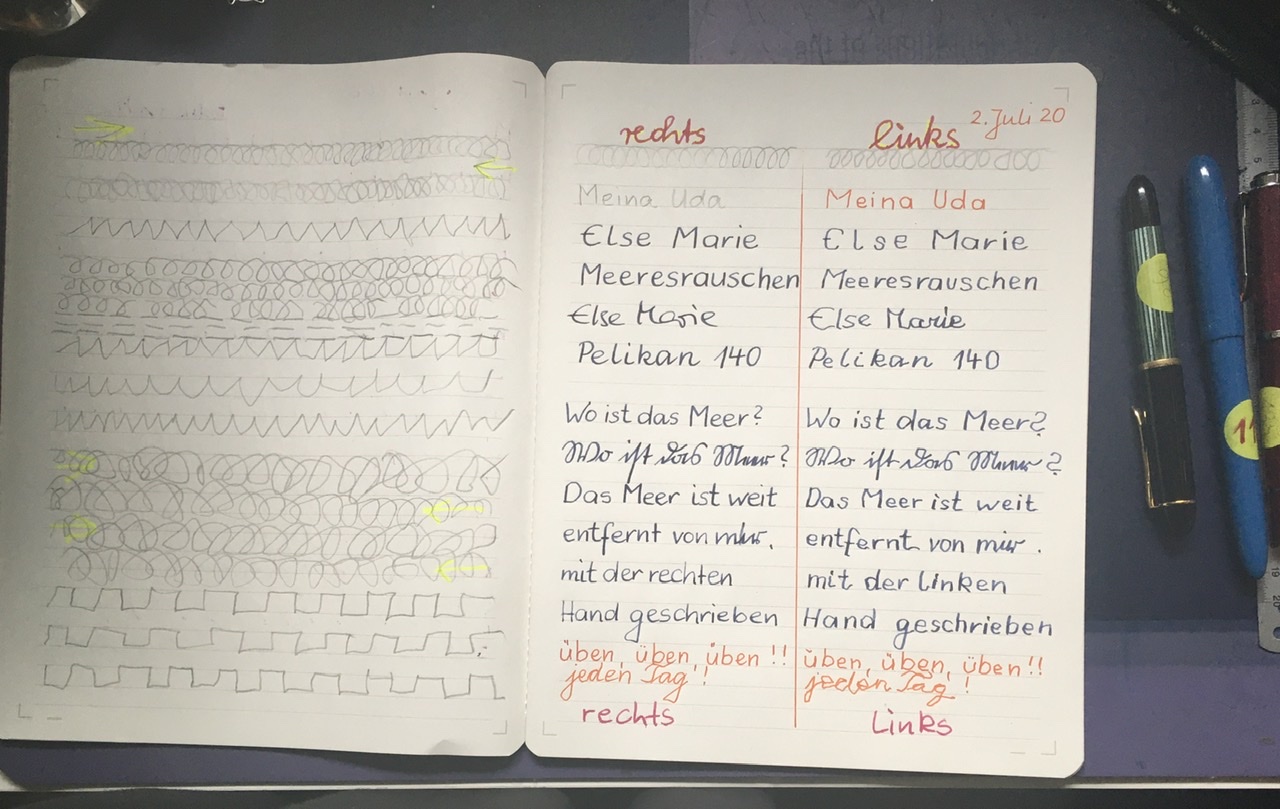 2. Juli 20
rechts links
Meina Uda Meina Uda
Else Marie Else Marie
Meeresrauschen Meeresrauschen
Else Marie Else Marie
Pelikan 140 Pelikan 140
Wo ist das Meer? Wo ist das Meer?
Wo ist das Meer? Wo ist das Meer?
Das Meer ist weit Das Meer ist weit
entfernt von mir. entfernt von mir.
mit der rechten mit der linken
Hand geschrieben Hand geschrieben
üben, üben, üben !! üben, üben, üben!!
jeden Tag! jeden Tag!
rechts Links